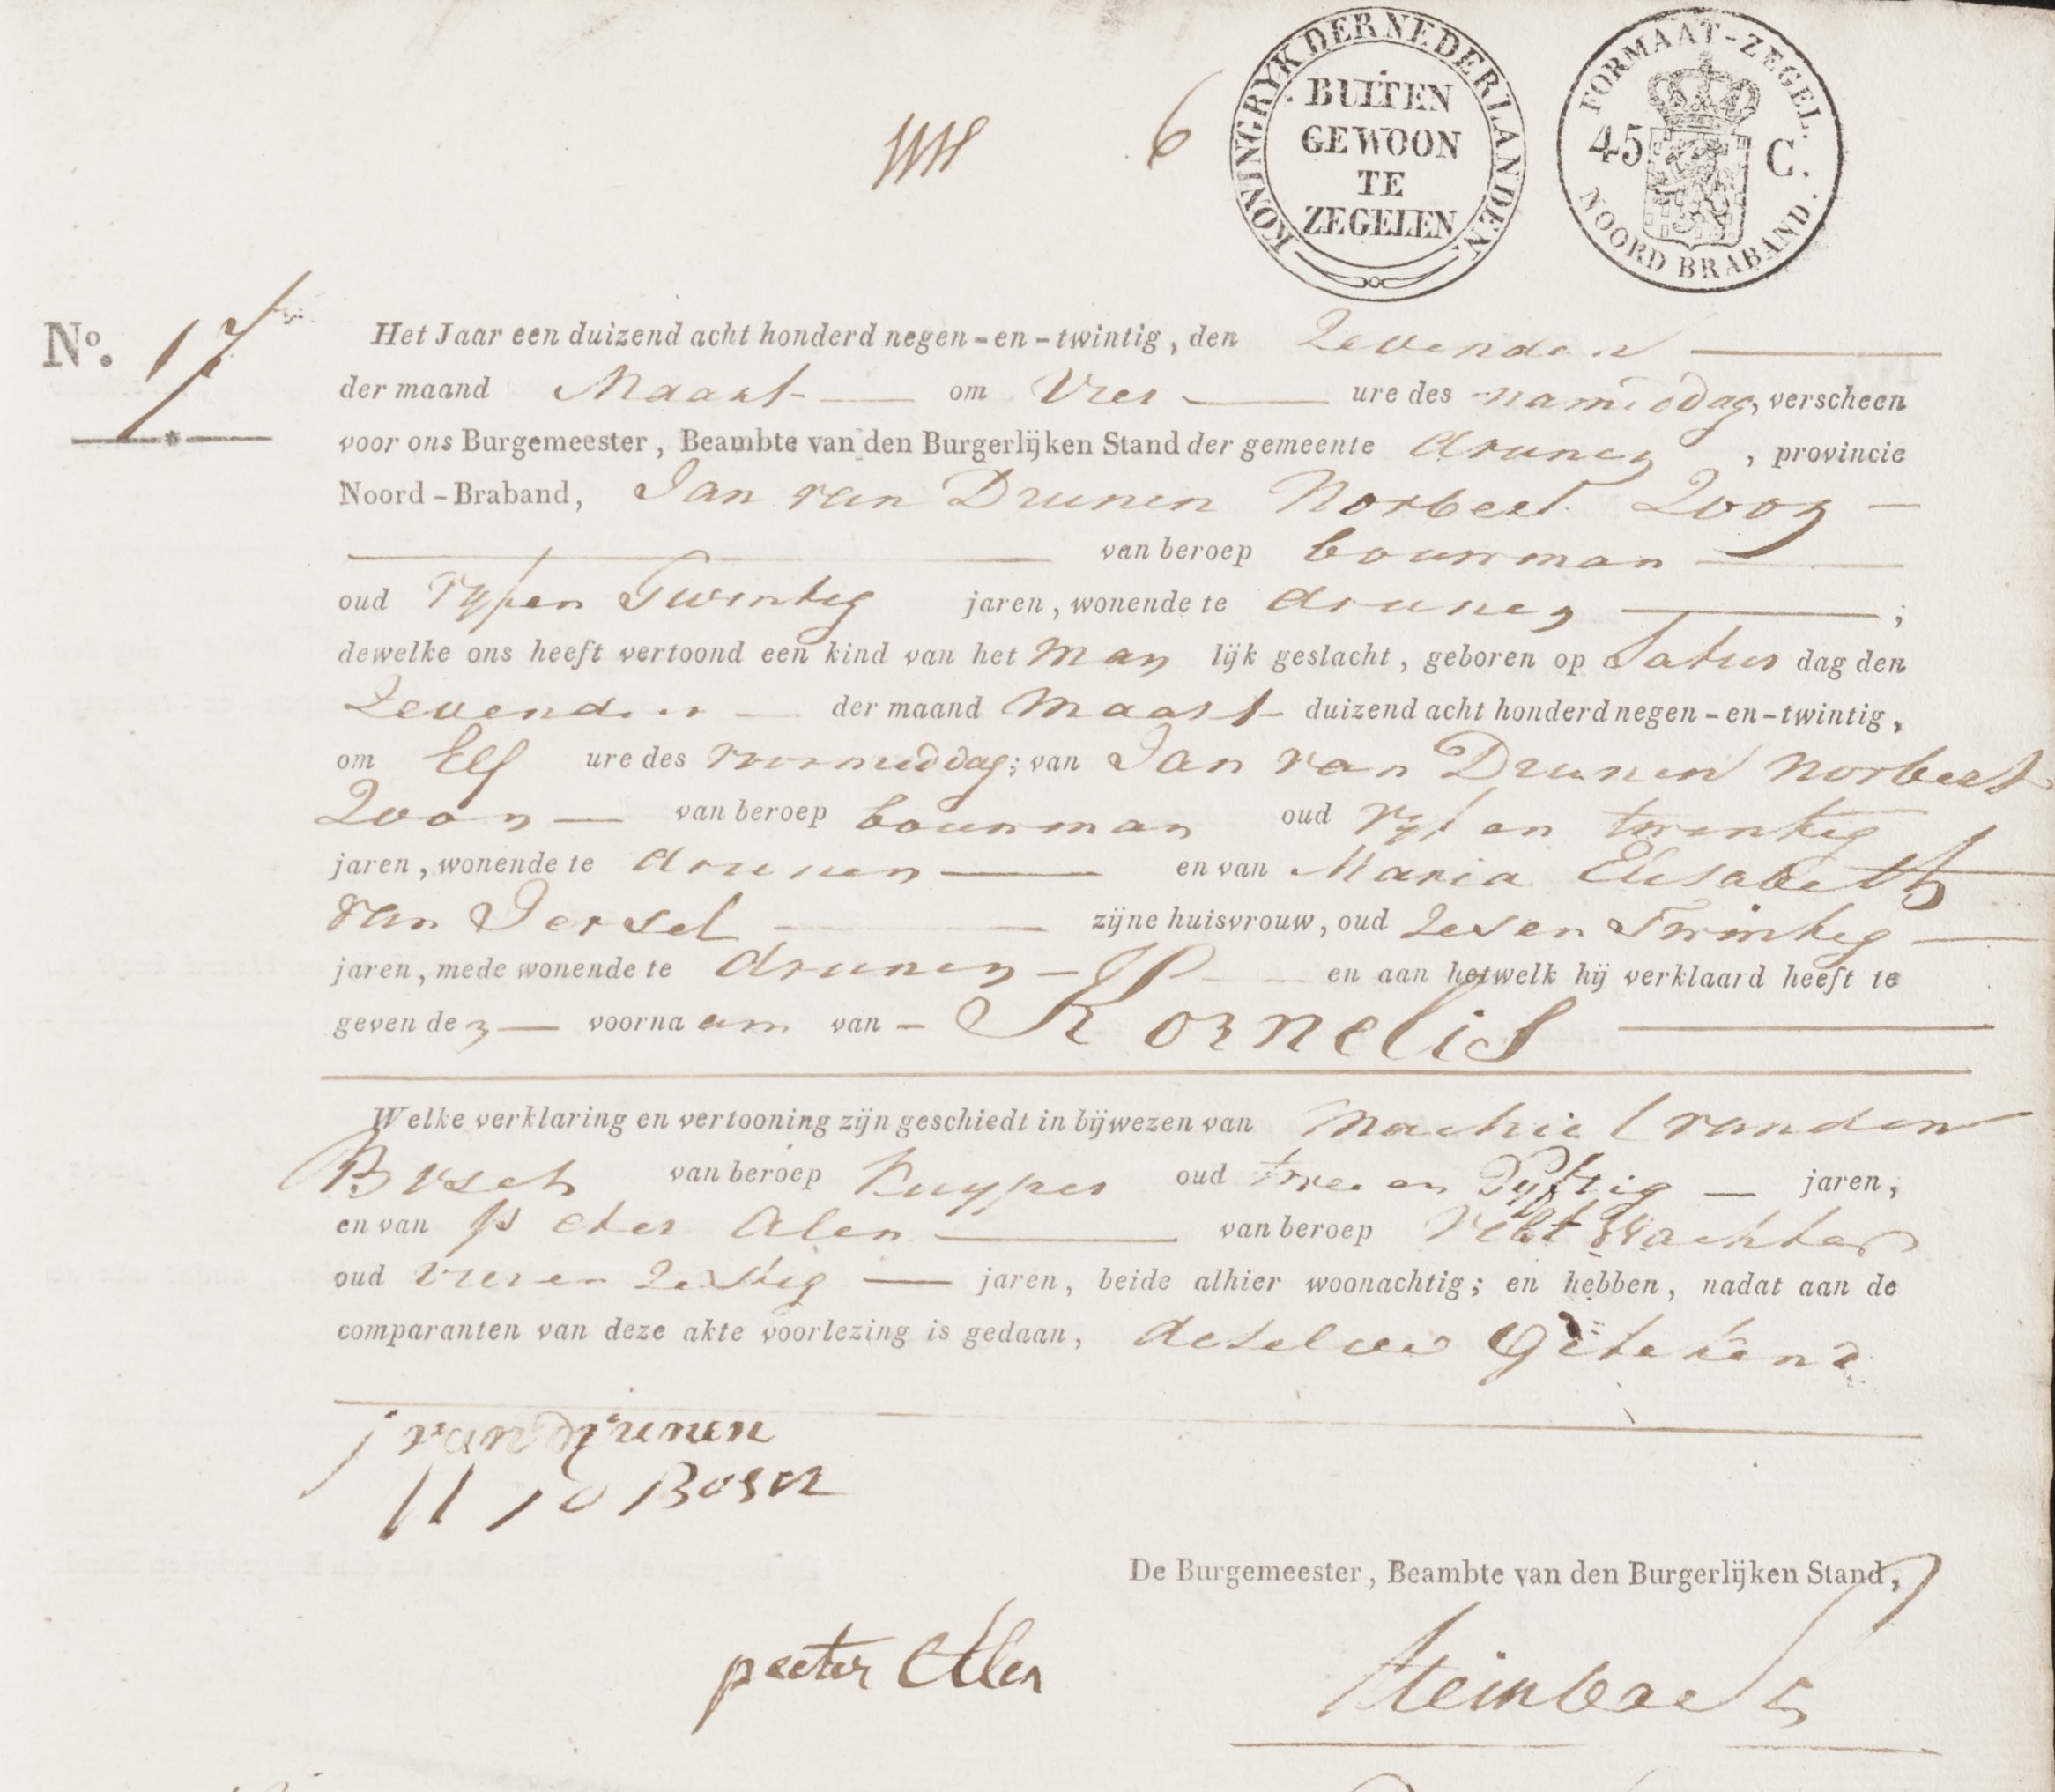 6
KONINGRYK DER NEDERLANDEN.
BUITEN
GEWOON
TE
ZEGELEN
FORMAAT-ZEGEL.
45 C.
NOORD BRABAND.
No. 17
Het Jaar een duizend acht honderd negen-en-twintig, den Zevenden
der maand Maart om Vier ure des namiddag, verscheen
voor ons Burgemeester, Beambte van den Burgerlijken Stand der gemeente drunen, provincie
Noord-Braband, Jan van Drunen Norbert Zoon
van beroep bouwman
oud vyfen Twintig jaren, wonende te drunen;
dewelke ons heeft vertoond een kind van het man lijk geslacht, geboren op Satur dag den
Zevenden der maand maart duizend acht honderd negen-en-twintig,
om Elf ure des voormiddag; van Jan van Drunen norbert
Zoon van beroep bouwman oud vyf en twintig
jaren, wonende te drunen en van Maria Elisabeth
van Iersel zijne huisvrouw, oud zesen Twintig
jaren, mede wonende te drunen en aan hetwelk hij verklaard heeft te
geven den voornaam van Kornelis
Welke verklaring en vertooning zijn geschiedt in bijwezen van Machiel vanden
Bosch van beroep kuyper oud twee en Vyftig jaren,
en van Peter Alen van beroep Velt Wachter
oud Vieren Zestig jaren, beide alhier woonachtig; en hebben, nadat aan de
comparanten van deze akte voorlezing is gedaan, deselve Getekend
j van drunen
M v d Bosch
De Burgemeester, Beambte van den Burgerlijken Stand,
peeter Alen